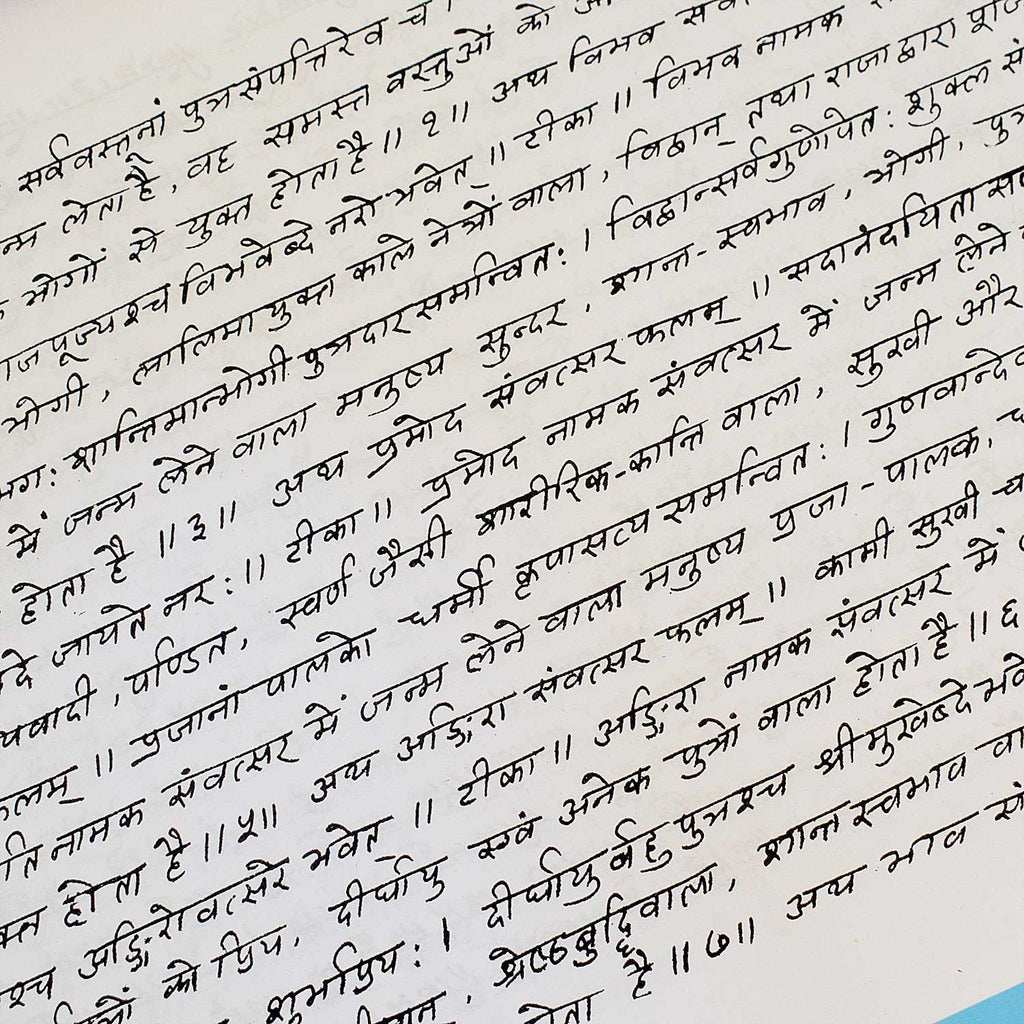 सर्ववस्तूनां पुत्रसंपत्तिरेव च
लेता है, वह समस्त वस्तुओं को
भोगों से युक्त होता है॥ २॥ अथ विभव
राजपूज्यश्च विभवेब्दे नरो भवेत्॥ टीका॥ विभव नामक
भोगी, लालिमायुक्त काले नेत्रों वाला, विद्वान् तथा राजा द्वारा
शान्तिमान्भोगी पुत्रदारसमन्वितः। विद्वान्सर्वगुणोपेतः शुक्ल
में जन्म लेने वाला मनुष्य सुन्दर, शान्त-स्वभाव, भोगी, पुत्र
होता है ॥३॥ अथ प्रमोद संवत्सर फलम्॥ सदानंदयिता
जायते नरः॥ टीका॥ प्रमोद नामक संवत्सर में जन्म लेने
पण्डित, स्वर्ण जैसी शारीरिक-कान्ति वाला, सुखी और
फलम्॥ प्रजानां पालको धर्मी कृपासत्यसमन्वितः। गुणवान्देव
नामक संवत्सर में जन्म लेने वाला मनुष्य प्रजा-पालक,
होता है॥५॥ अथ अङ्गिरा संवत्सर फलम्॥ कामी सुखी
अङ्गिरोवत्सरे भवेत॥ टीका॥ अङ्गिरा नामक संवत्सर में
को प्रिय, दीर्घायु एवं अनेक पुत्रों वाला होता है॥६
दीर्घायुर्बहुपुत्रश्च श्रीमुखेब्दे भवे
श्रेष्ठबुद्धिवाला, शान्त स्वभाव
होता है॥७॥ अथ भाव